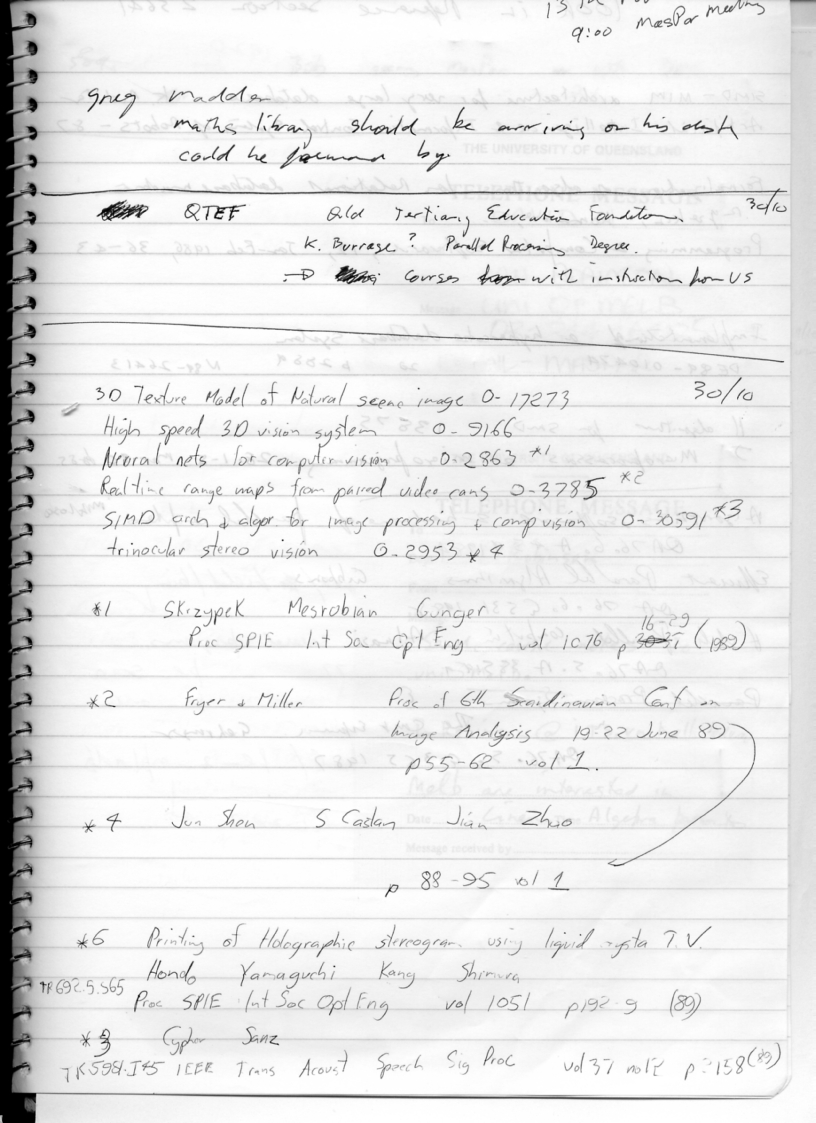 9:00 MasPar Meeting
Greg Madden
maths library should be arriving on his desk
could be by
30/10
QTEF Qld Tertiary Education Foundation
K. Burrage ? Parallel Processing Degree.
courses with instruction from US
3D Texture Model of Natural scene image 0-17273 30/10
High speed 3D vision system 0-9166
Neural nets for computer vision 0-2863 *1
Realtime range maps from paired video cams 0-3785 *2
SIMD arch & algor for image processing + comp vision 0-30591 *3
trinocular stereo vision 0-2953 * 4
*1 Skrzypek Mesrobian Gungner
16-29
Proc SPIE Int Soc Opt Eng vol 1076 p (1989)
*2 Fryer & Miller Proc of 6th Scandinavian Conf on
Image Analysis 19-22 June 89
p55-62 vol 1.
*4 Jun Shen S Castan Jian Zhao
p 88-95 vol 1
*6 Printing of Holographic stereogram using liquid T.V.
Honda Yamaguchi Kang Shimura
TA692.5.S65
Proc SPIE Int Soc Opt Eng vol 1051 p192-9 (89)
*3 Cypher Sanz
TK5981.I45 IEEE Trans Acoust Speech Sig Proc vol 37 (89)